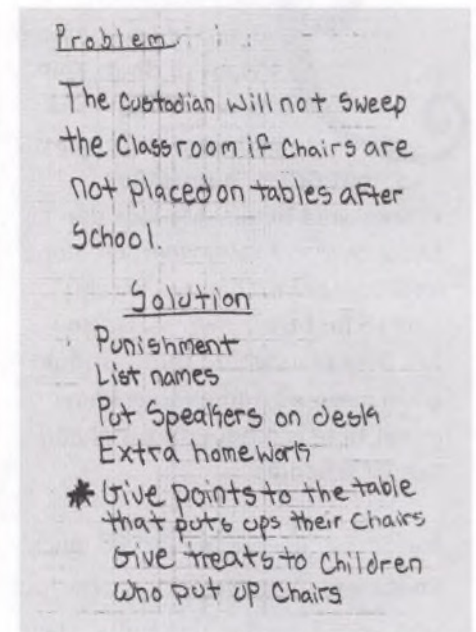 Problem
The custodian will not sweep
the classroom if chairs are
not placed on tables after
School.
Solution
Punishment
List names
Put Speakers on desk
Extra homework
* Give points to the table
that puts ups their chairs
Give treats to children
who put up chairs